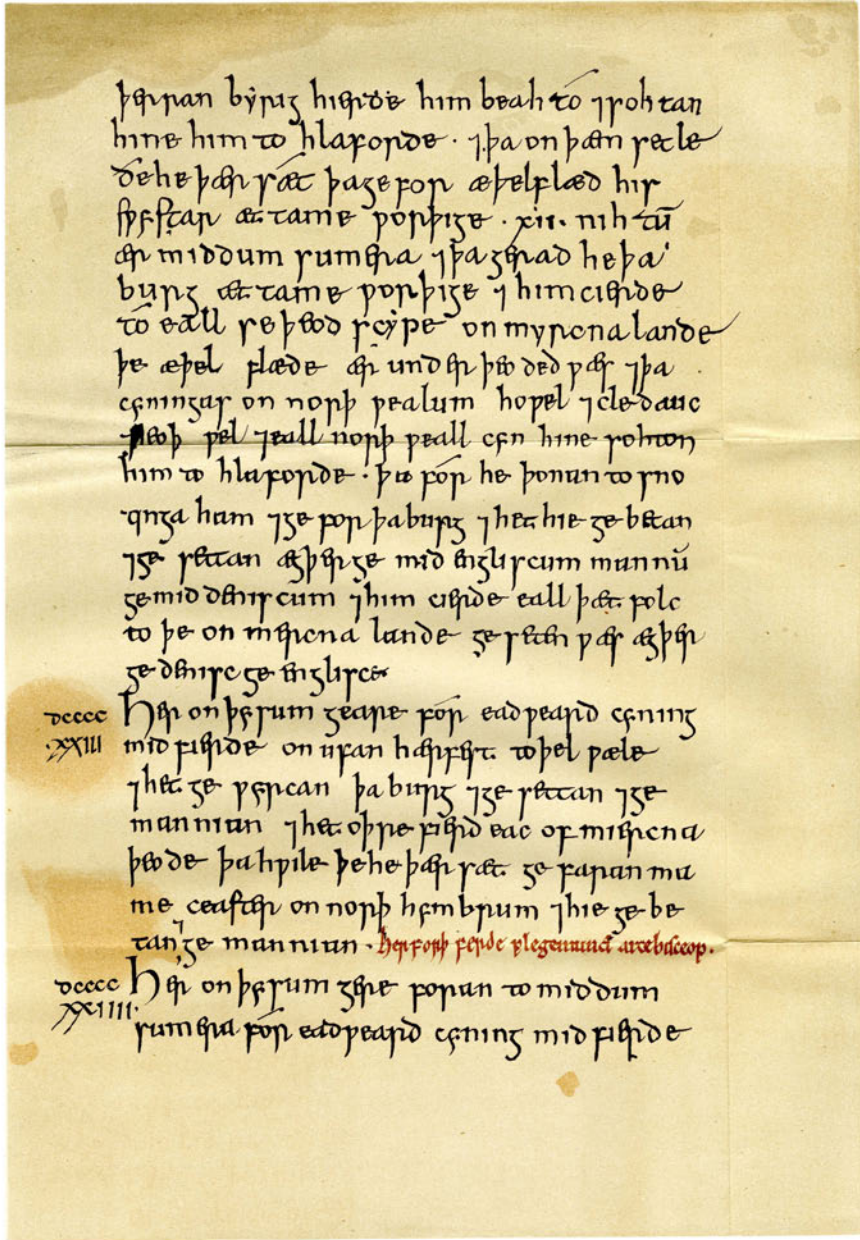 þerran býrig hierde him beah tó ⁊ sohtan
hine him to hlaforde · ⁊ þa on þæm setle
ðe he þær sǽt þa gefor æþelflæd his
sƿystar æt tame ƿorþige · xii · nihtū
ær middum sumera ⁊ þa gerad he þa
burg æt tame ƿorþige ⁊ him cierde
tó eall se þeodscýpe on myrcna lande
þe æþelflæde ær underþeoded ƿæs ⁊ þa
cyningas on norþ ƿealum hoƿel ⁊ cledauc
⁊ ieoþƿel ⁊ eall norþ ƿeallcyn hine sohton
him to hlaforde · þa fór he þonan to sno
tingaham ⁊ gefor þa burg ⁊ het hie gebetan
⁊ gesettan ægþer ge mid engliscum mannū
ge mid deniscum ⁊ him cierde eall þæt folc
to þe on mercna lande geseten ƿæs ægþer
ge denisc ge englisce
dcccc xxiii Her on þysum geare fór eadƿeard cyning
mid fierde on ufan hærfest to þelƿæle
⁊ het geƿyrcan þa burg ⁊ gesettan ⁊ ge
mannian ⁊ het oþre fierd eac of miercna
þeode þa hƿile þe he þær sæt gefaran ma
me ceaster on norþhymbrum ⁊ hie gebe
tan ⁊ gemannian · her forþ ferde plegemund arcebisceop.
dcccc xxiiii Her on þysum gere foran to middum
sumera fór eadƿeard cyning mid fierde